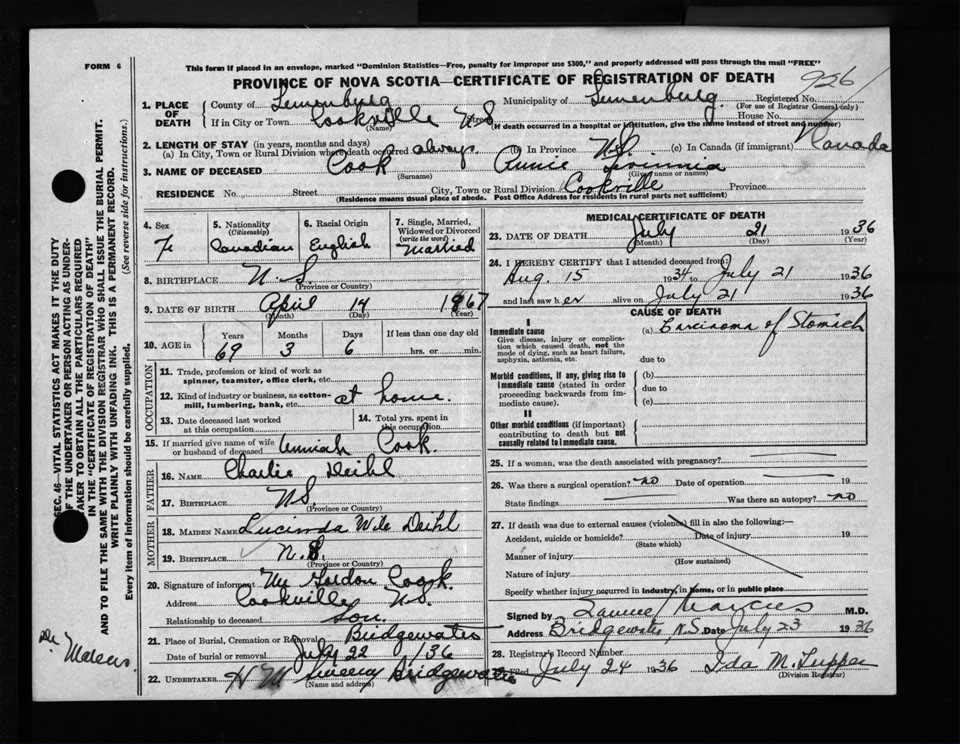 FORM 6
This form if placed in an envelope, marked "Dominion Statistics—Free, penalty for improper use $300," and properly addressed will pass through the mail "FREE"
PROVINCE OF NOVA SCOTIA—CERTIFICATE OF REGISTRATION OF DEATH
926
1. PLACE OF DEATH
County of Lunenburg Municipality of Lunenburg Registered No.
(For use of Registrar General only)
If in City or Town Cookville N.S. Street House No.
(Name) (If death occurred in a hospital or institution, give the name instead of street and number)
2. LENGTH OF STAY (in years, months and days)
(a) In City, Town or Rural Division where death occurred always (b) In Province N.S. (c) In Canada (if immigrant) Canada
3. NAME OF DECEASED Cook Annie
(Surname) (Given name or names)
RESIDENCE No. Street City, Town or Rural Division Cookville Province
(Residence means usual place of abode. Post Office Address for residents in rural parts not sufficient)
4. Sex F
5. Nationality (Citizenship) Canadian
6. Racial Origin English
7. Single, Married, Widowed or Divorced (write the word) Married
8. BIRTHPLACE N.S.
(Province or Country)
9. DATE OF BIRTH April 14 1867
(Month) (Day) (Year)
10. AGE in Years Months Days If less than one day old
69 3 6 hrs. or min.
OCCUPATION
11. Trade, profession or kind of work as spinner, teamster, office clerk, etc.
12. Kind of industry or business, as cotton-mill, lumbering, bank, etc. at home.
13. Date deceased last worked at this occupation
14. Total yrs. spent in this occupation
15. If married give name of wife or husband of deceased Cook.
FATHER
16. NAME Charlie Deihl
17. BIRTHPLACE N.S.
(Province or Country)
MOTHER
18. MAIDEN NAME Lucinda Wile Deihl
19. BIRTHPLACE N.S.
(Province or Country)
20. Signature of informant Mr Gordon Cook.
Address Cookville N.S.
Relationship to deceased son.
21. Place of Burial, Cremation or Removal Bridgewater
Date of burial or removal July 22 /36
22. UNDERTAKER H M Sweeny Bridgewater
(Name and address)
MEDICAL CERTIFICATE OF DEATH
23. DATE OF DEATH July 21 1936
(Month) (Day) (Year)
24. I HEREBY CERTIFY that I attended deceased from:
Aug. 15 1934 to July 21 1936
and last saw her alive on July 21 1936
CAUSE OF DEATH
I
Immediate cause
Give disease, injury or complication which caused death, not the mode of dying, such as heart failure, asphyxia, asthenia, etc.
(a) Carcinoma of Stomach
due to
Morbid conditions, if any, giving rise to immediate cause (stated in order proceeding backwards from immediate cause).
(b)
due to
(c)
II
Other morbid conditions (if important) contributing to death but not causally related to immediate cause.
25. If a woman, was the death associated with pregnancy?
26. Was there a surgical operation? no Date of operation 19
State findings Was there an autopsy? no
27. If death was due to external causes (violence) fill in also the following:—
Accident, suicide or homicide? Date of injury 19
(State which)
Manner of injury
(How sustained)
Nature of injury
Specify whether injury occurred in Industry, in Home, or in public place
Signed by M.D.
Address Bridgewater, N.S. Date July 23 1936
28. Registrar's Record Number
Filed July 24 1936 Ida M. Tupper
(Division Registrar)
SEC. 46—VITAL STATISTICS ACT MAKES IT THE DUTY
OF THE UNDERTAKER OR PERSON ACTING AS UNDERTAKER
TO OBTAIN ALL THE PARTICULARS REQUIRED
IN THE "CERTIFICATE OF REGISTRATION OF DEATH"
AND TO FILE THE SAME WITH THE DIVISION REGISTRAR WHO SHALL ISSUE THE BURIAL PERMIT.
WRITE PLAINLY WITH UNFADING INK. THIS IS A PERMANENT RECORD.
Every item of information should be carefully supplied. (See reverse side for instructions.)
Dr.